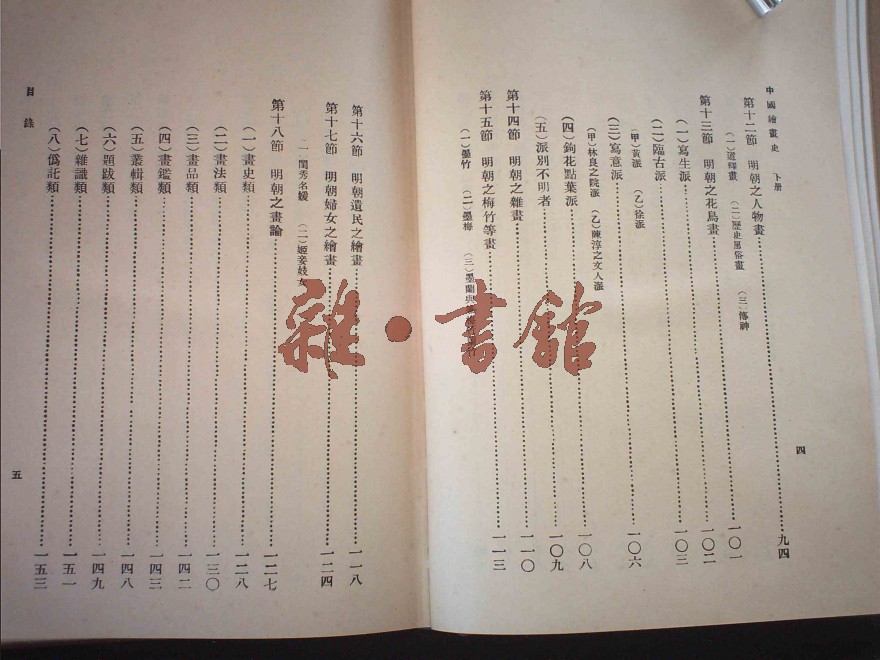 中國繪畫史　下册
第十二節　明朝之人物畫……九四
（一）道釋畫　（二）歷史風俗畫　（三）傳神
第十三節　明朝之花鳥畫……一〇一
（一）寫生派……一〇二
（二）臨古派……一〇三
（甲）黃派　（乙）徐派
（三）寫意派……一〇六
（甲）林良之院派　（乙）陳淳之文人派
（四）鉤花點葉派……一〇八
（五）派別不明者……一〇九
第十四節　明朝之雜畫……一一〇
第十五節　明朝之梅竹等畫……一一三
（一）墨竹　（二）墨梅　（三）墨蘭與
四
第十六節　明朝遺民之繪畫……一一八
第十七節　明朝婦女之繪畫……一二四
（一）閨秀名媛　（二）姬妾妓女
第十八節　明朝之畫論……一二七
（一）畫史類……一二八
（二）畫法類……一三〇
（三）畫品類……一四二
（四）畫鑑類……一四三
（五）叢輯類……一四八
（六）題跋類……一四九
（七）雜識類……一五一
（八）僞託類……一五三
目錄
五
雜·書館